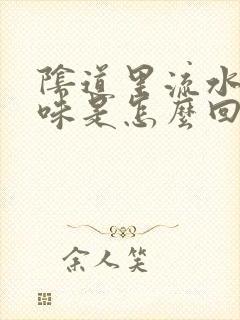 陰道里流水
味是怎麼回
余人笑